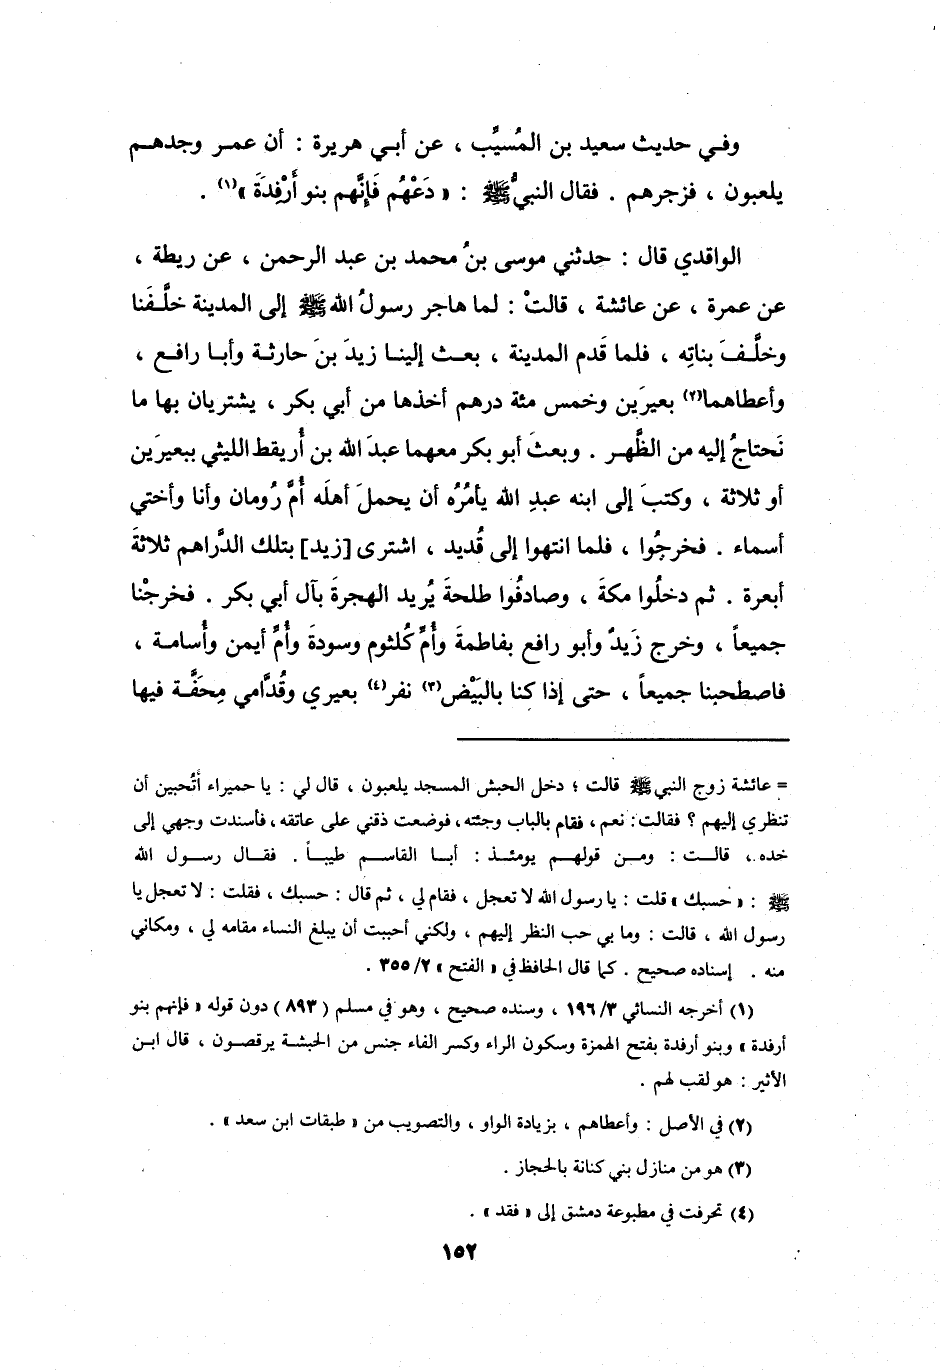 وفي حديث سعيد بن المُسيِّب ، عن أبي هريرة : أن عمر وجدهم
يلعبون ، فزجرهم . فقال النبيُّ ﷺ : « دَعْهُم فَإِنَّهم بنو أَرْفِدَةَ »(١) .
الواقدي قال : حدثني موسى بنُ محمد بن عبد الرحمن ، عن ريطة ،
عن عمرة ، عن عائشة ، قالتْ : لما هاجر رسولُ الله ﷺ إلى المدينة خلَّفَنا
وخلَّفَ بناتِه ، فلما قَدم المدينة ، بعث إلينا زيدَ بنَ حارثة وأبا رافع ،
وأعطاهما(٢) بعيرَين وخمس مئة درهم أخذها من أبي بكر ، يشتريان بها ما
نَحتاجُ إليه من الظَّهر . وبعثَ أبو بكر معهما عبدَ الله بن أُريقط الليثي ببعيرَين
أو ثلاثة ، وكتبَ إلى ابنه عبدِ الله يأمُرُه أن يحملَ أهلَه أُمَّ رُومان وأنا وأختي
أسماء . فخرجُوا ، فلما انتهوا إلى قُديد ، اشترى [زيد] بتلك الدَّراهم ثلاثةَ
أبعرة . ثم دخلُوا مكةَ ، وصادفُوا طلحةَ يُريد الهجرةَ بآل أبي بكر . فخرجْنا
جميعاً ، وخرج زَيدٌ وأبو رافع بفاطمةَ وأُمِّ كُلثوم وسودةَ وأُمِّ أيمن وأُسامة ،
فاصطحبنا جميعاً ، حتى إذا كنا بالبَيْض(٣) نفر(٤) بعيري وقُدَّامي مِحَفَّة فيها
= عائشة زوج النبي ﷺ قالت ؛ دخل الحبش المسجد يلعبون ، قال لي : يا حميراء أتُحبين أن
تنظري إليهم ؟ فقالت: نعم ، فقام بالباب وجئته، فوضعت ذقني على عاتقه، فأسندت وجهي إلى
خده ، قالت : ومن قولهم يومئذ : أبا القاسم طيباً . فقال رسول الله
ﷺ : « حسبك » قلت : يا رسول الله لا تعجل ، فقام لي ، ثم قال : حسبك ، فقلت : لا تعجل يا
رسول الله ، قالت : وما بي حب النظر إليهم ، ولكني أحببت أن يبلغ النساء مقامه لي ، ومكاني
منه . إسناده صحيح . كما قال الحافظ في « الفتح » ٣٥٥/٢ .
(١) أخرجه النسائي ١٩٦/٣ ، وسنده صحيح ، وهو في مسلم ( ٨٩٣ ) دون قوله « فإنهم بنو
أرفدة » وبنو أرفدة بفتح الهمزة وسكون الراء وكسر الفاء جنس من الحبشة يرقصون ، قال ابن
الأثير : هو لقب لهم .
(٢) في الأصل : وأعطاهم ، بزيادة الواو ، والتصويب من « طبقات ابن سعد » .
(٣) هو من منازل بني كنانة بالحجاز .
(٤) تحرفت في مطبوعة دمشق إلى « فقد » .
١٥٢